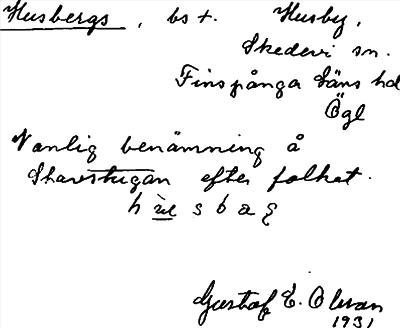 Husbergs, bst. Husby,
Skedevi sn.
Finspånga läns hd
Ögl
Vanlig benämning å
efter folket.
Gustaf E. Olsson
1931